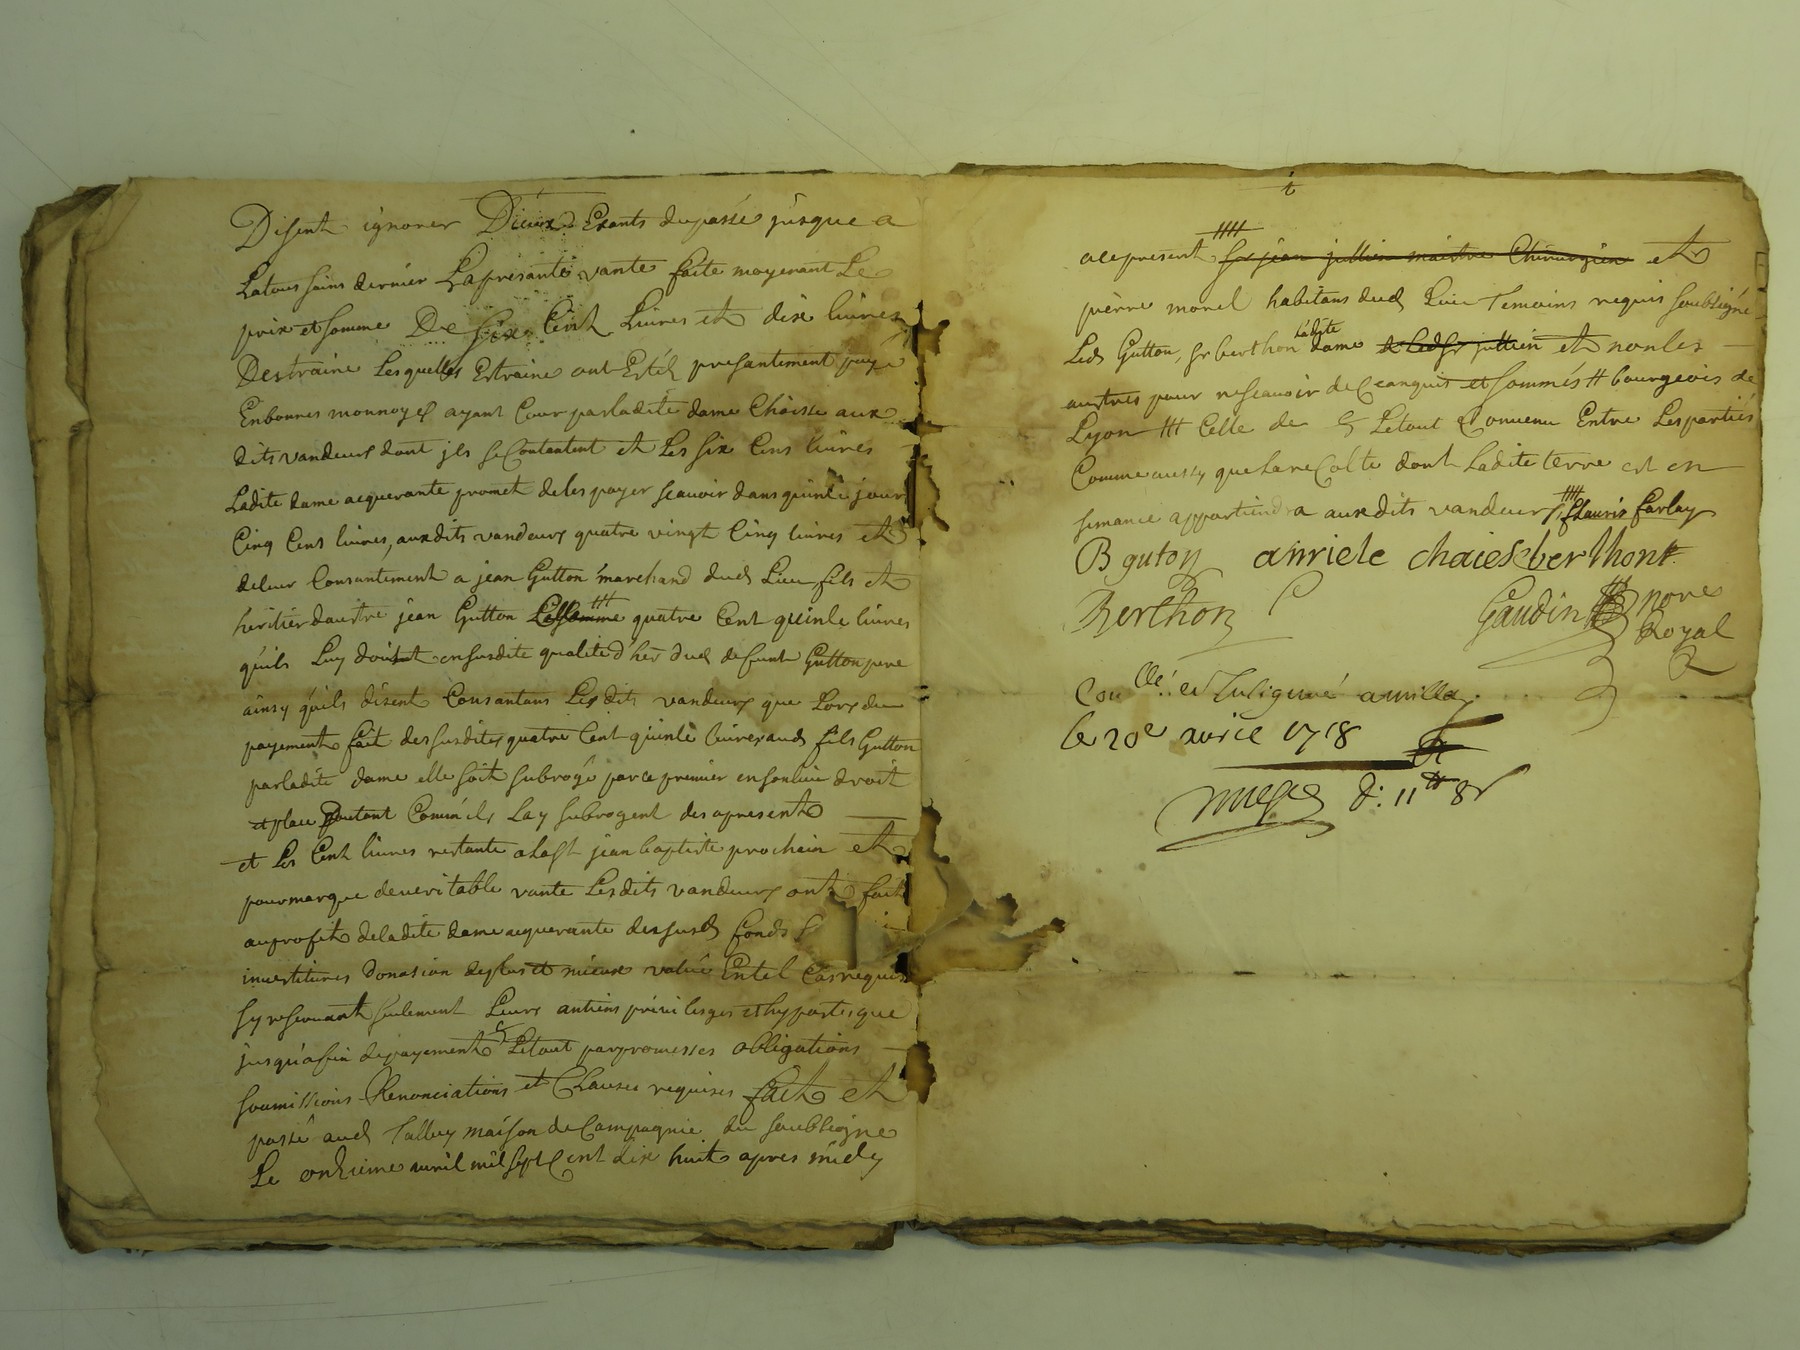 Disent ignorer D'iceux Exants du passé jusque a
Latoussains dernier La présante vante faite moyenant Le
prix et somme De Six Cent Livres et dix livres
Destraine Lesquelles Estraine ont Estéz presantement payé
En bonnes monnoyes ayant Cour par ladite dame Chaisse aux
dits vandeurs dont jls se Contantent et Les six Cens livres
Ladite dame acquerante promet de les payer scauoir dans quinze jour
Cinq Cens livres, auxdits vandeurs quatre vingt Cinq livres et
de leur Consantement a jean Gutton marchand dud Lieu fils et
heritier dautre jean Gutton quatre Cent quinze livres
quils Luy doivent en susdite qualité d'her dud defunt Gutton pere
ainsy quils disent Consantans Lesdits vandeurs que Lors du
payement fait des susdites quatre Cent quinze livres aud fils Gutton
par ladite dame elle soit subrogé par ce premier en son lieu droit
et place Comm'ils Lay subrogent des apresent
et Les Cent livres restante a la st jean baptiste prochain et
pour marque de veritable vante Lesdits vandeurs ont fait
au profit de ladite dame acquerante des susd fonds
investitures donasion des plus et mieux value En tel Cas requis
sy reservant seulement Leurs antiens privilesges et hypoteque
jusqu'a fin de payement Le tout par promesses obligations
soumissions Renonciations et Clauses requises fait et
passé aud Talluy maison de Campagnie du soubsigne
Le onzieme avril mil sept Cent dix huit apres midy
a ce present sr jean jullien maistre Chirurgien et
pierre morel habitans dud Lieu Temoins requis soubsigné
Led Gutton, sr berthon ladite dame & led sr jullien et non les
autres pour ne scauoir de ce enquis et sommés # bourgeois de
Lyon ### Celle de Le tout Convenu Entre Les partiés
Comme aussy que La recolte dont Ladite terre est en
semance appartiendra auxdits vandeurs, #### flauris farlay
B guton anriete chaies berthont
Berthon Gaudin nore
Royal
Con llé et
le 20e avril 1718